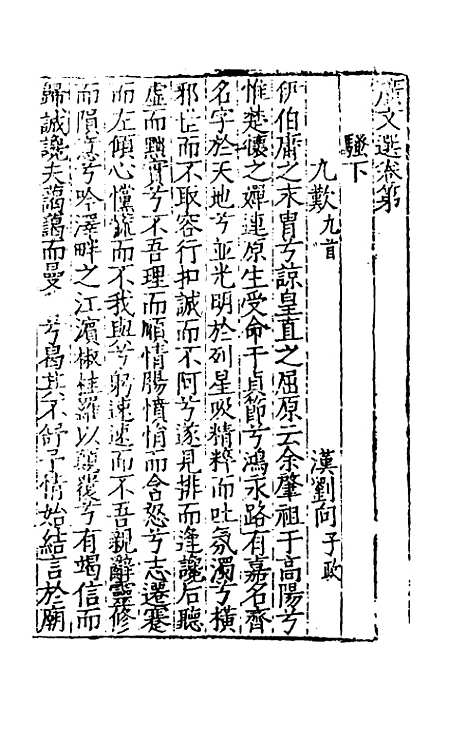 廣文選卷第
騷下
九歎九首
漢劉向子政
伊伯庸之末胄兮諒皇直之屈原云余肇祖于高陽兮
惟楚懷之嬋連原生受命于貞節兮鴻永路有嘉名齊
名字於天地兮並光明於列星吸精粹而吐氛濁兮橫
邪世而不取容行扣誠而不阿兮遂見排而逢讒后聽
虛而黜實兮不吾理而順情腸憤悁而含怒兮志遷蹇
而左傾心戃慌而不我與兮躬速速而不吾親辭靈修
而隕意兮吟澤畔之江濱椒桂羅以顛覆兮有竭信而
歸誠讒夫藹藹而曼 兮曷其不舒予情始結言於廟